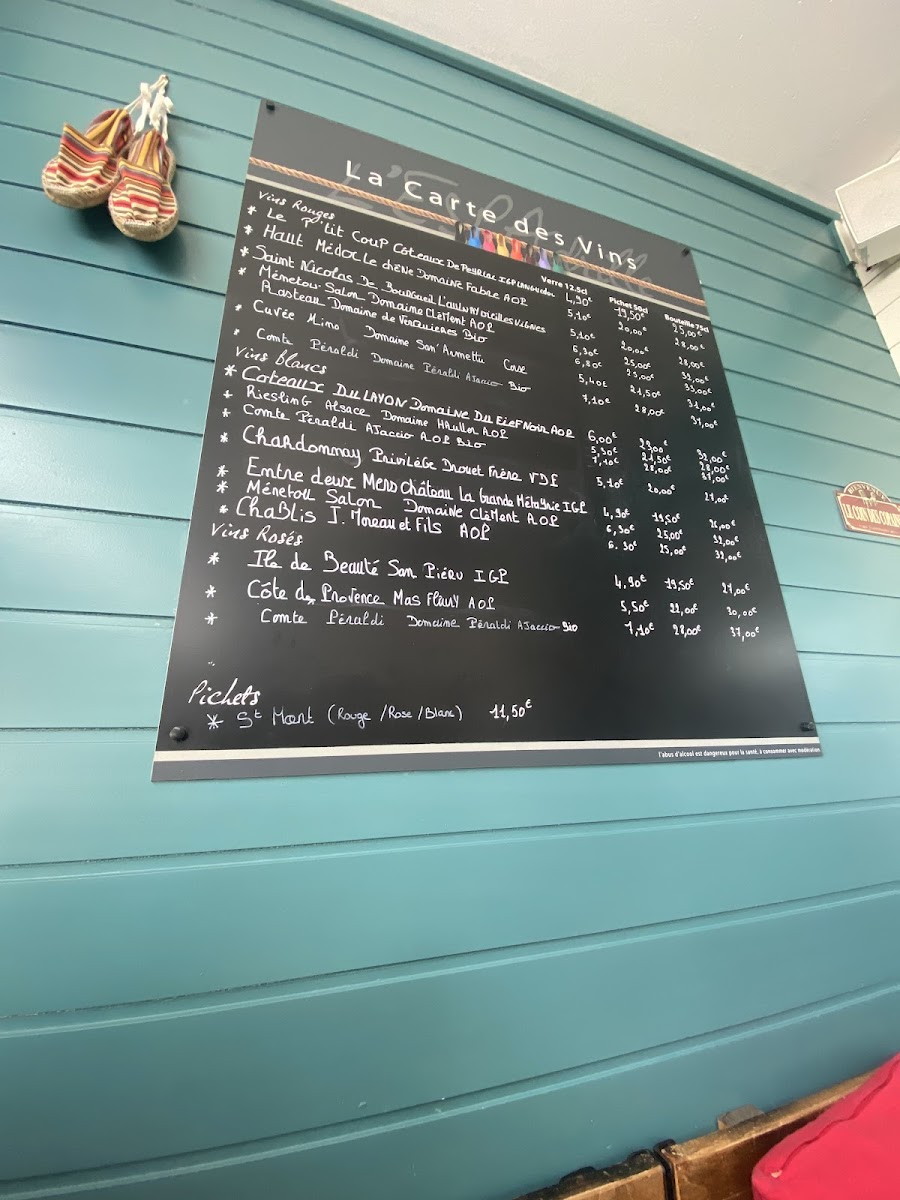 La Carte des Vins
Verre 12.5cl Pichet 50cl Bouteille 75cl
Vins Rouges
* Le P'tit Coup Côteaux De Peyriac IGP 4,90€ 19,50€ 25,00€
* Haut Médoc Le chêne Domaine Fabre AOP 5,10€ 20,00€ 28,00€
* Saint Nicolas De Bourgueil L'aulnay vieilles Vignes 5,10€ 20,00€ 28,00€
* Ménetou-Salon Domaine Clément AOP 6,30€ 25,00€ 32,00€
Rasteau Domaine de Verquieres Bio 6,80€ 25,00€ 33,00€
* Cuvée Mino Domaine San'Armettu Corse 5,40€ 21,50€ 31,00€
* Comte Péraldi Domaine Péraldi AJaccio Bio 7,10€ 28,00€ 37,00€
Vins blancs
* Coteaux Du LAYON Domaine Du Fief Noir AOP 6,00€ 23,00€ 32,00€
* Riesling Alsace Domaine Haullor AOP 5,30€ 21,50€ 28,00€
* Comte Péraldi AJaccio AOP Bio 7,10€ 28,00€ 37,00€
* Chardonnay Privilège Drouet Frère VDF 5,10€ 20,00€ 27,00€
* Entre deux Mers Château La Grande Métairie IGP 4,90€ 19,50€ 26,00€
* Ménetou Salon Domaine Clément AOP 6,30€ 25,00€ 32,00€
* Chablis J. Moreau et Fils AOP 6.30€ 25,00€ 32,00€
Vins Rosés
* Ile de Beauté San Pieru IGP 4,90€ 19,50€ 27,00€
* Côte de Provence Mas Fleury AOP 5,50€ 22,00€ 30,00€
* Comte Péraldi Domaine Péraldi AJaccio Bio 7,10€ 28,00€ 37,00€
Pichets
* St Mont (Rouge /Rose /Blanc) 11,50€
l'abus d'alcool est dangereux pour la santé, à consommer avec modération
BIENVENUE
LE COIN DES COPAINS